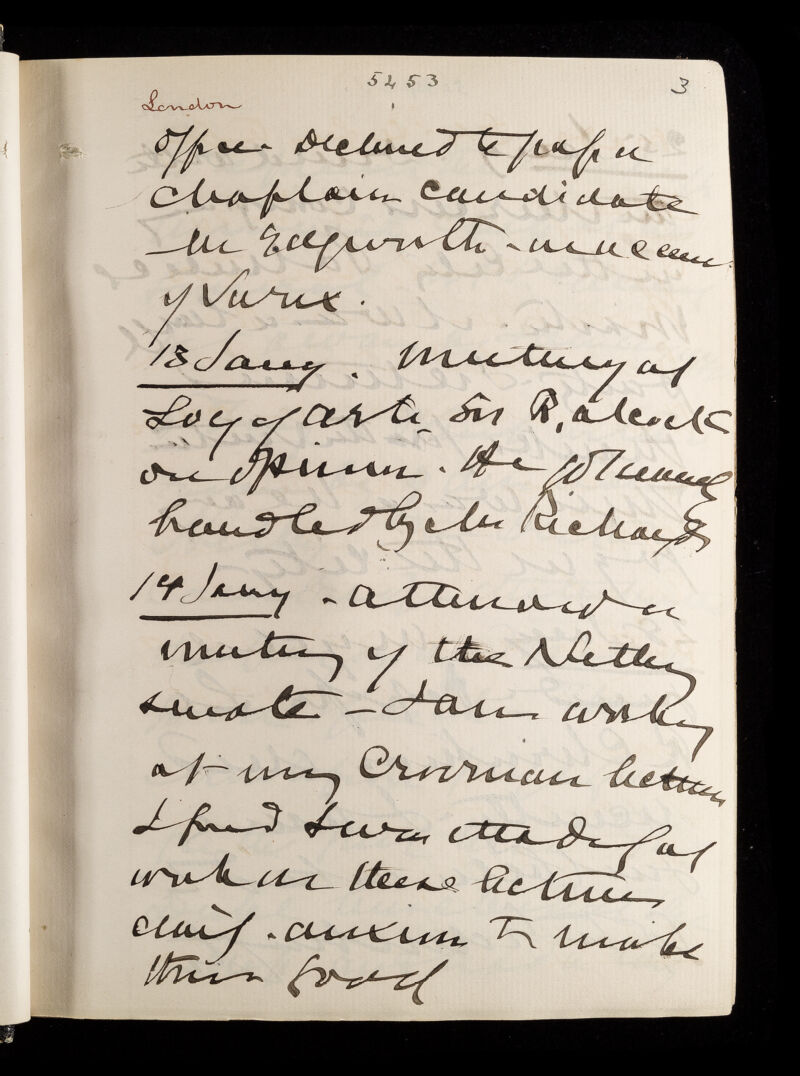 5453
3
London
office. declined to pass a
chaplain candidate
Mr Edgworth - on account
of Varix.
13 Jany. Meeting at
Soy of Arts, Sir R. Alcock
on opium. He got
handled by Mr Richards
14 Jany - attended a
meeting of the Netley
senate - I am working
at my Croonian lectures
I find I am steadily at
work on these lectures
daily. anxious to make
them good